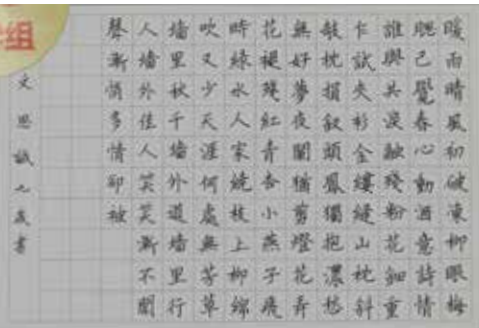 暖雨晴風初破凍柳眼梅
腮已覺春心動酒意詩情
誰與共淚融殘粉花鈿重
乍試夾衫金縷縫山枕斜
敧枕損釵頭鳳獨抱濃愁
無好夢夜闌猶剪燈花弄
花褪殘紅青杏小燕子飛
時綠水人家繞枝上柳綿
吹又少天涯何處無芳草
墻里秋千墻外道墻里行
人墻外佳人笑笑漸不聞
聲漸悄多情卻被
文思誠七歲書
组